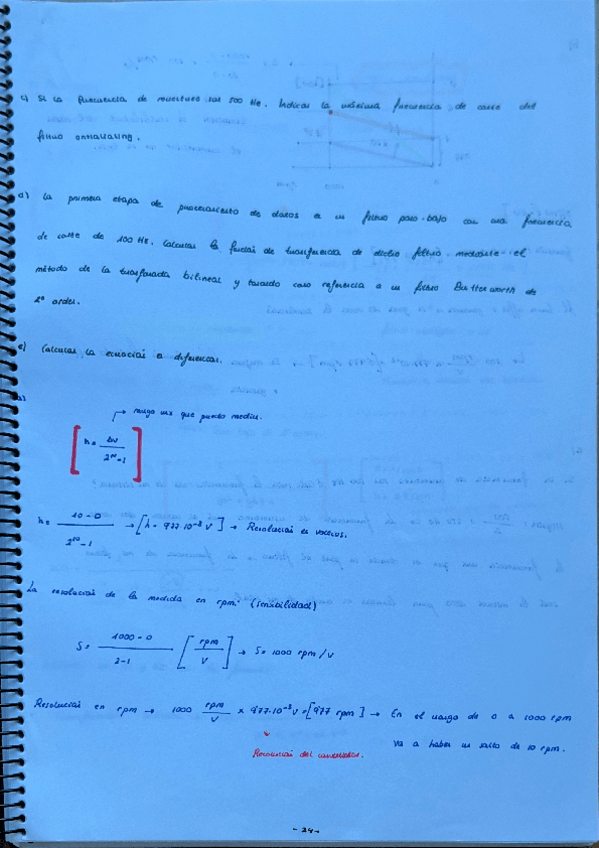 c) Si la frecuencia de muestreo son 500 Hz. Indicar la máxima frecuencia de corte del
filtro antialiasing.
d) La primera etapa de procesamiento de datos es un filtro paso-bajo con una frecuencia
de corte de 100 Hz. Calcular la función de transferencia de dicho filtro mediante el
método de la transformada bilineal y tomando como referencia a un filtro Butterworth de
2º orden.
e) Calcular la ecuación a diferencias.
→ rango que puedo medir.
h = ΔV / 2ᴺ-1
h = 10 - 0 / 2¹⁰ - 1 → [h = 977·10⁻³ V] → Resolución en voltios.
La resolución de la medida en rpm. (sensibilidad)
S = 1000 - 0 / 2-1 [rpm / V] → S = 1000 rpm/V
Resolución en rpm → 1000 rpm/V × 977·10⁻³ V = [977 rpm] → En el rango de 0 a 1000 rpm
va a haber un salto de 10 rpm.
Resolución del convertidor.
- 24 -